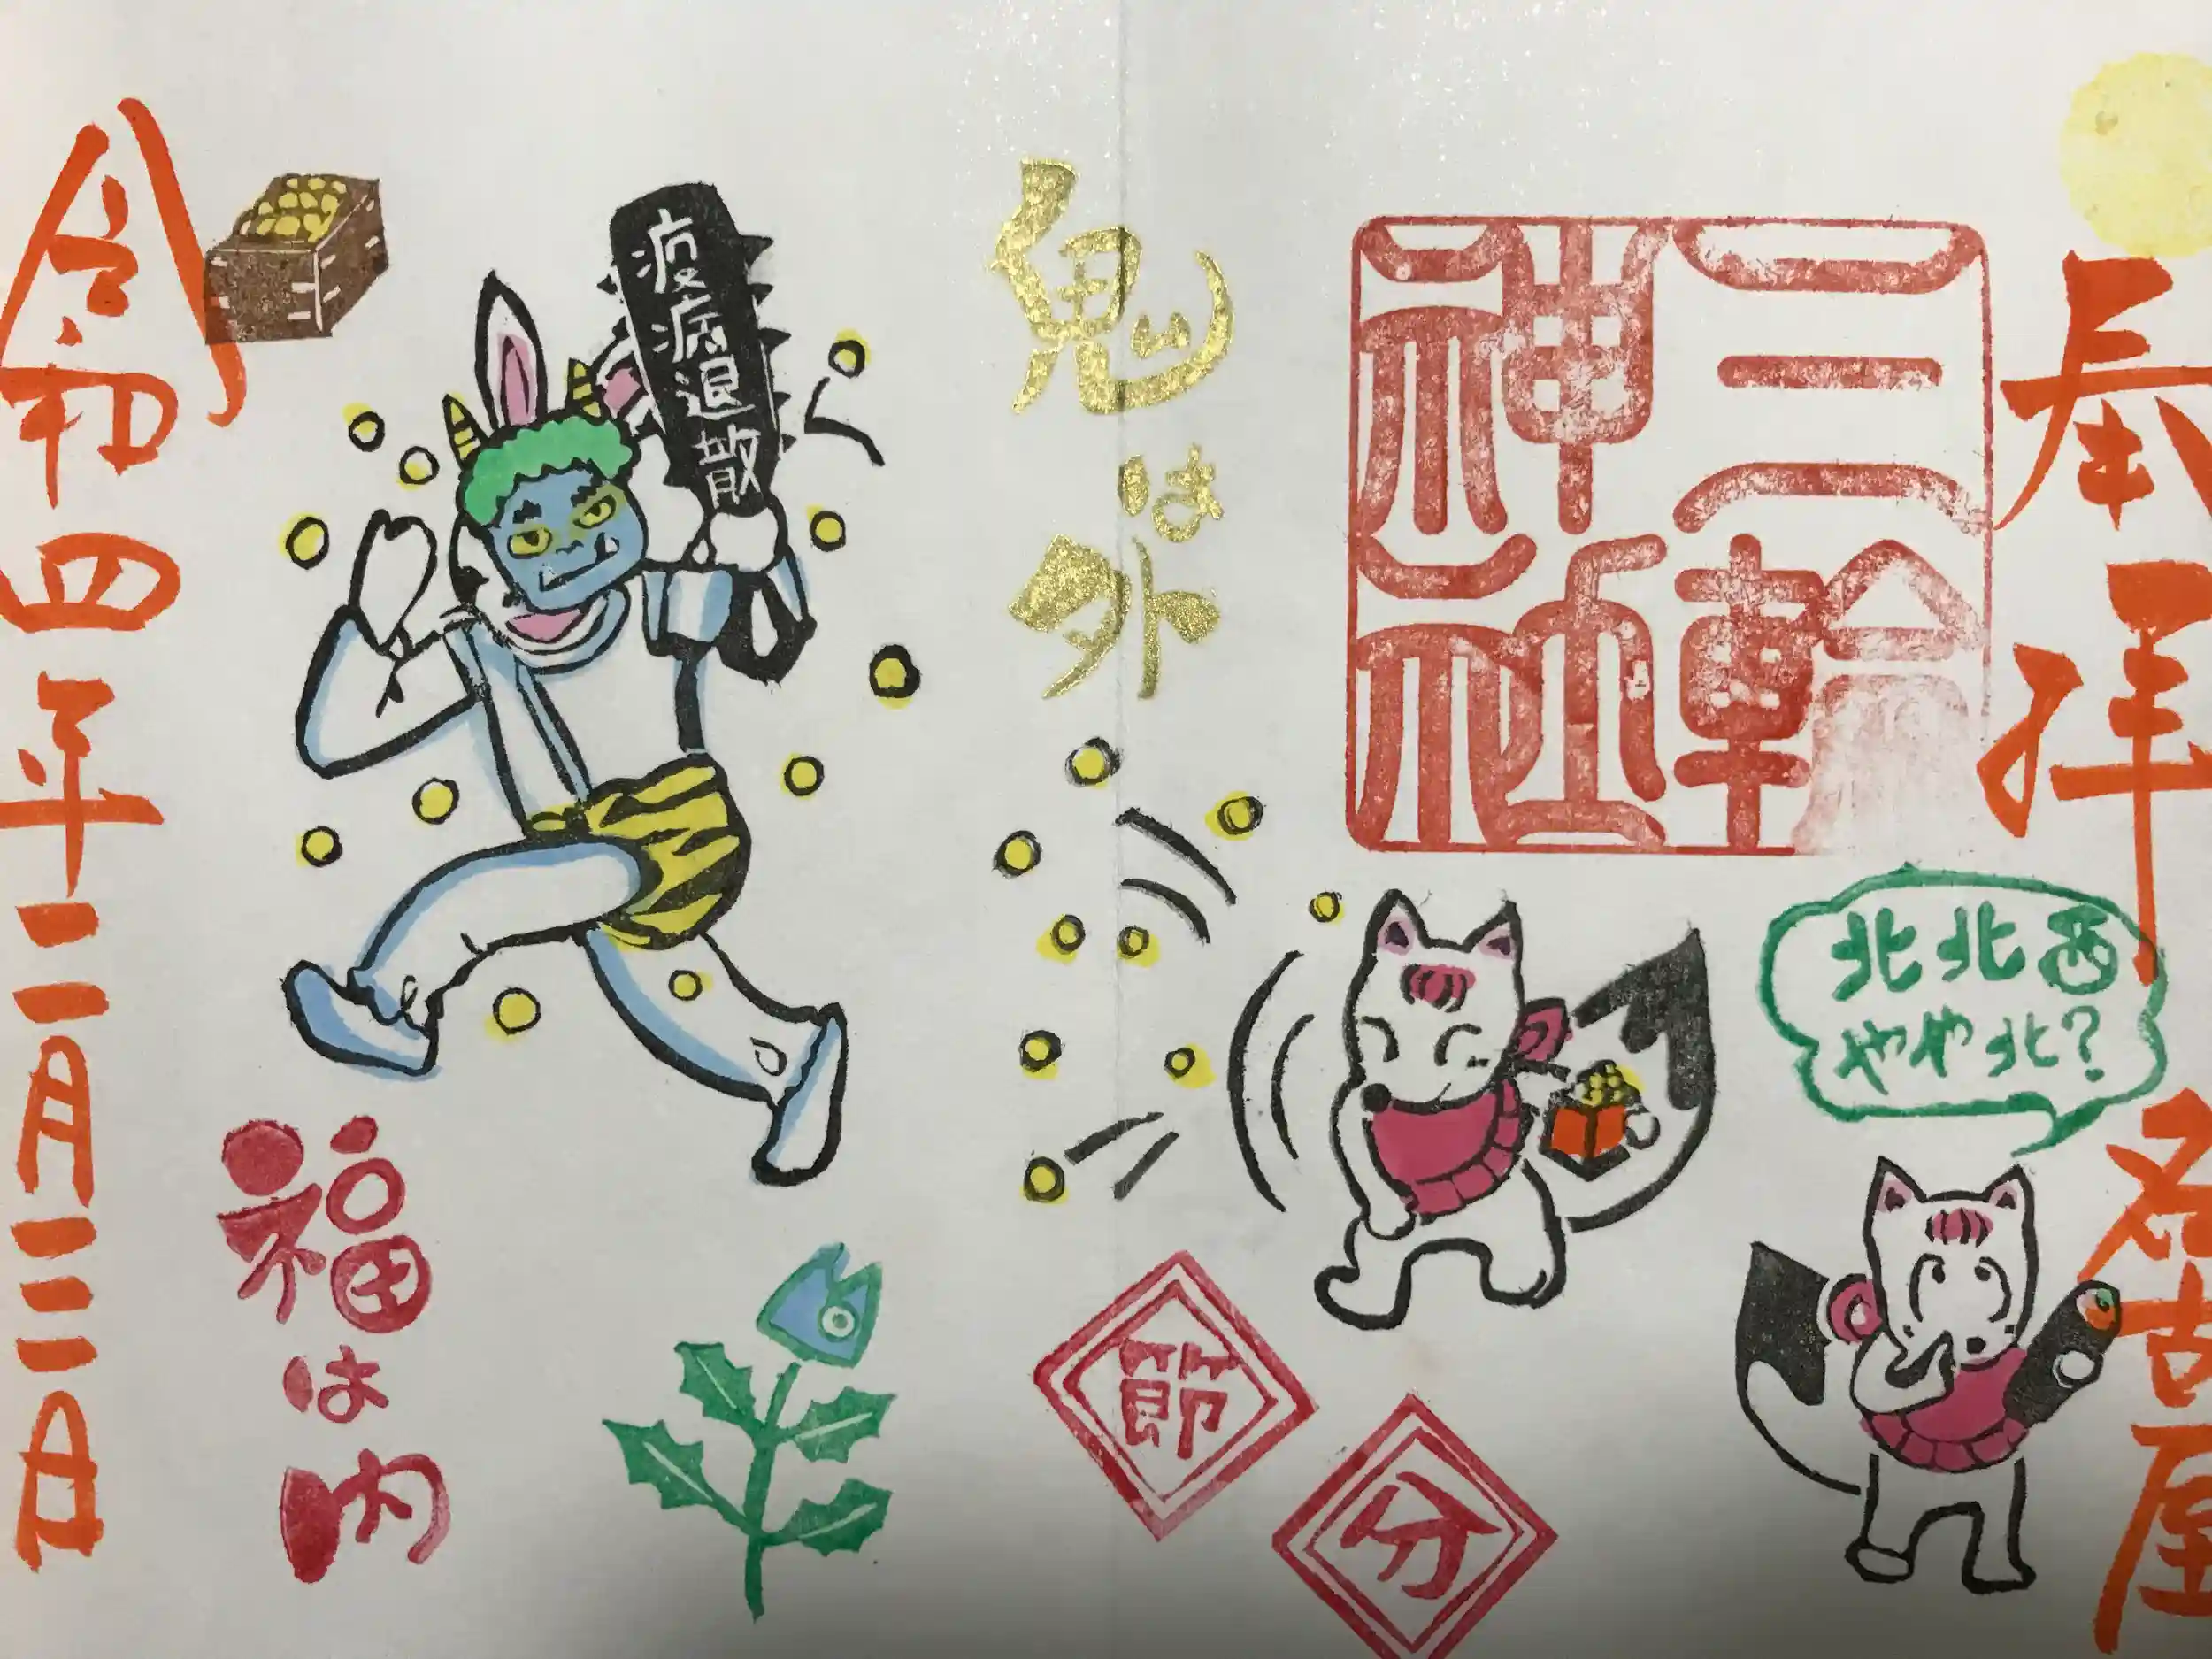 奉拝
名古屋
三輪
神社
北北西
やや北？
鬼は外
節
分
疫病退散
福は内
令和四年二月三日